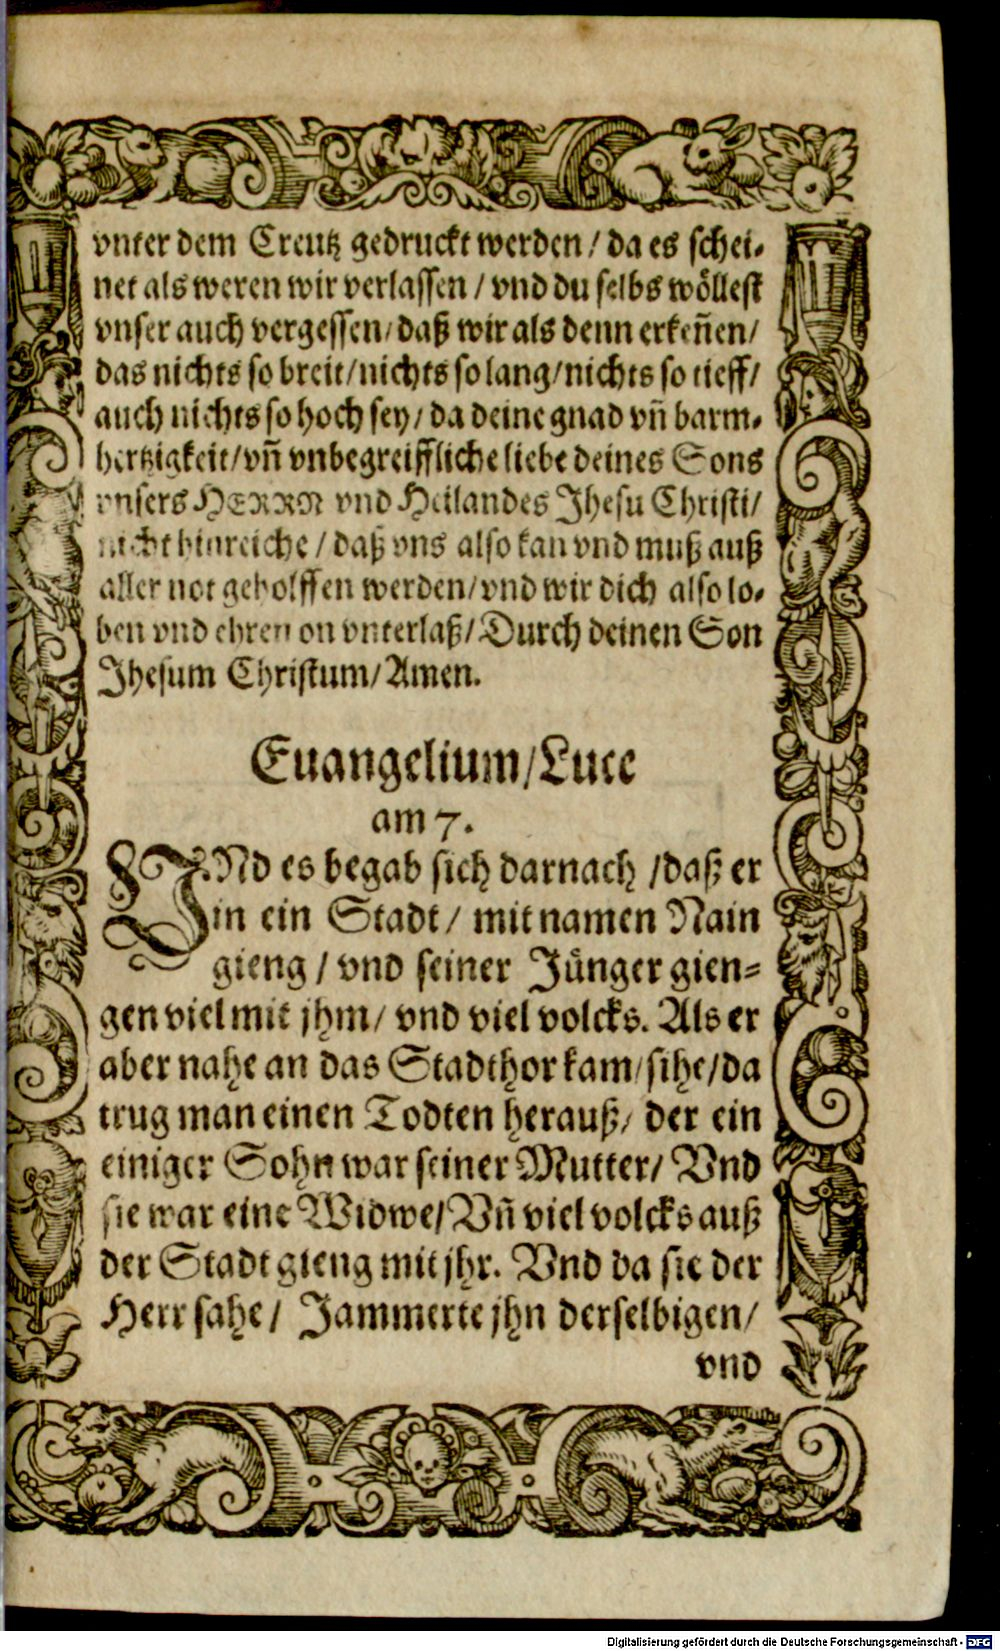 vnter dem Creutz gedruckt werden / da es schei-
net als weren wir verlassen / vnd du selbs wöllest
vnser auch vergessen / daß wir als denn erkeñen /
das nichts so breit / nichts so lang / nichts so tieff /
auch nichts so hoch sey / da deine gnad vñ barm-
hertzigkeit / vñ vnbegreiffliche liebe deines Sons
vnsers HERRN vnd Heilandes Jhesu Christi /
nicht hinreiche / daß vns also kan vnd muß auß
aller not geholffen werden / vnd wir dich also lo-
ben vnd ehren on vnterlaß / Durch deinen Son
Jhesum Christum / Amen.
Euangelium / Luce
am 7.
VNd es begab sich darnach / daß er
in ein Stadt / mit namen Nain
gieng / vnd seiner Jünger gien-
gen viel mit jhm / vnd viel volcks. Als er
aber nahe an das Stadthor kam / sihe / da
trug man einen Todten herauß / der ein
einiger Sohn war seiner Mutter / Vnd
sie war eine Widwe / Vñ viel volcks auß
der Stadt gieng mit jhr. Vnd da sie der
Herr sahe / Jammerte jhn derselbigen /
vnd
Digitalisierung gefördert durch die Deutsche Forschungsgemeinschaft - DFG